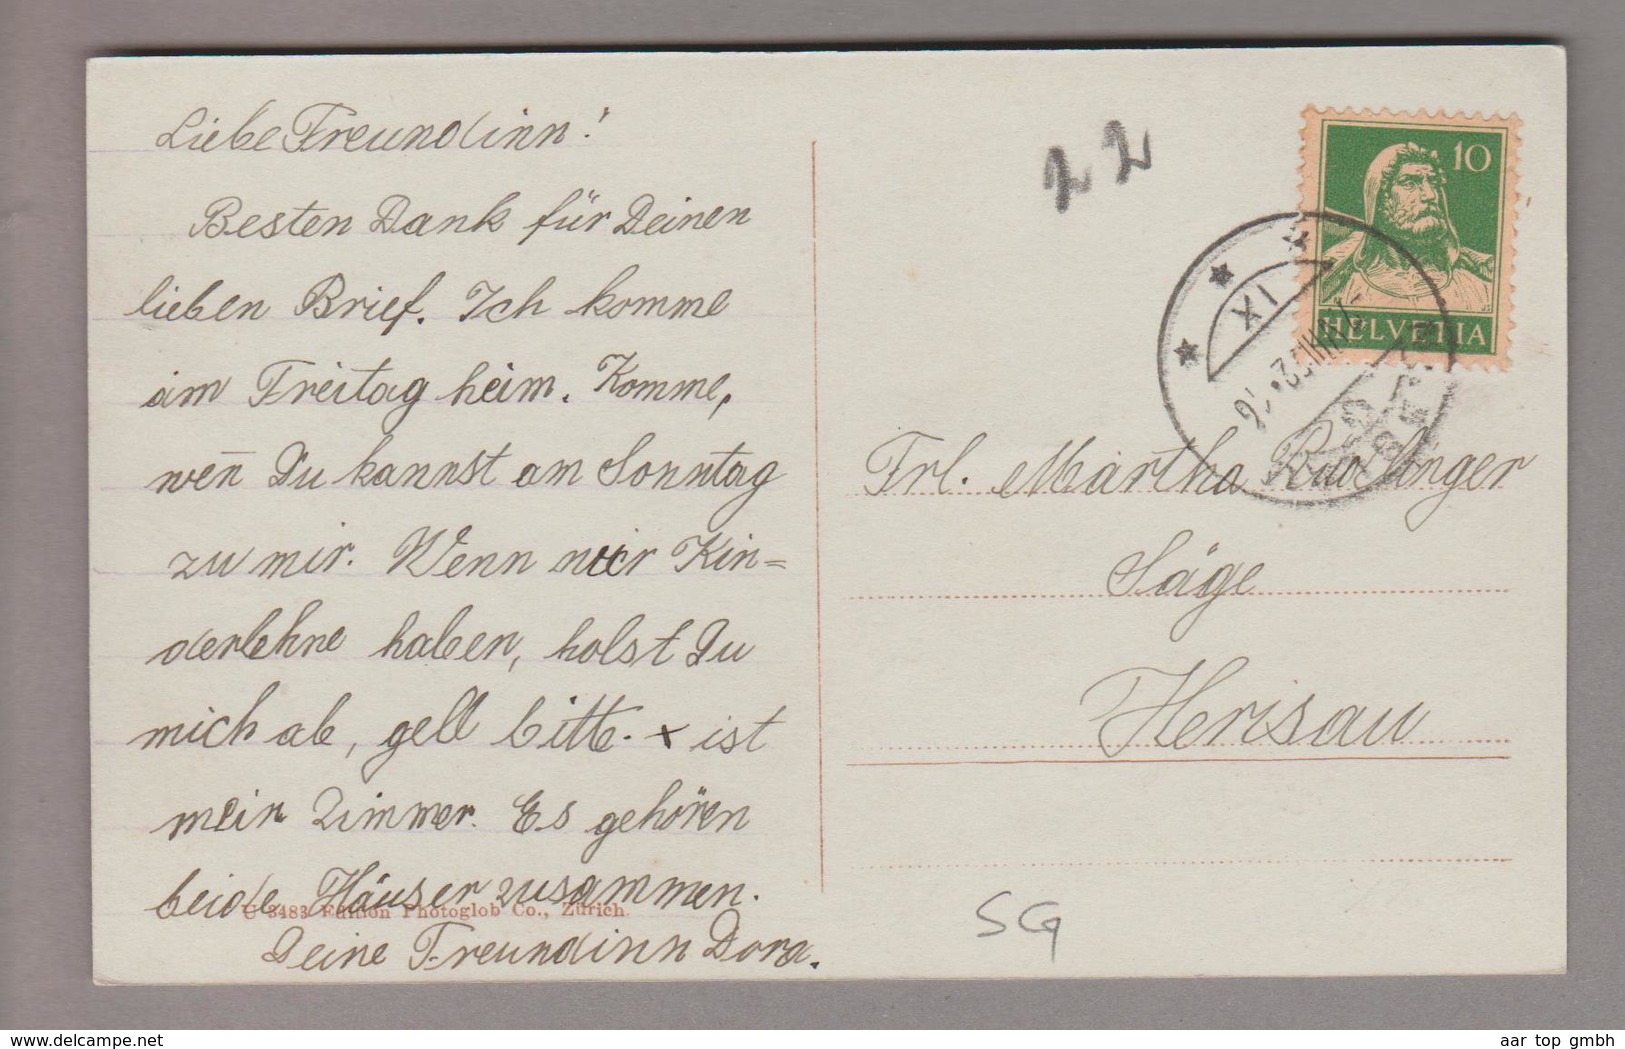 Liebe Freundinn!
Besten Dank für Deinen
lieben Brief. Ich komme
am Freitag heim. Komme,
wen̄ Du kannst am Sonntag
zu mir. Wenn wir Kin=
derlehne haben, holst Du
mich ab, gell bitte. x ist
mein Zimmer. Es gehören
beide Häuser zusammen.
C 3483 Edition Photoglob Co., Zürich
Deine Freundinn Dora.
22
10
HELVETIA
XI
Frl. Martha
Säge
Herisau
SG
aar top gmbh